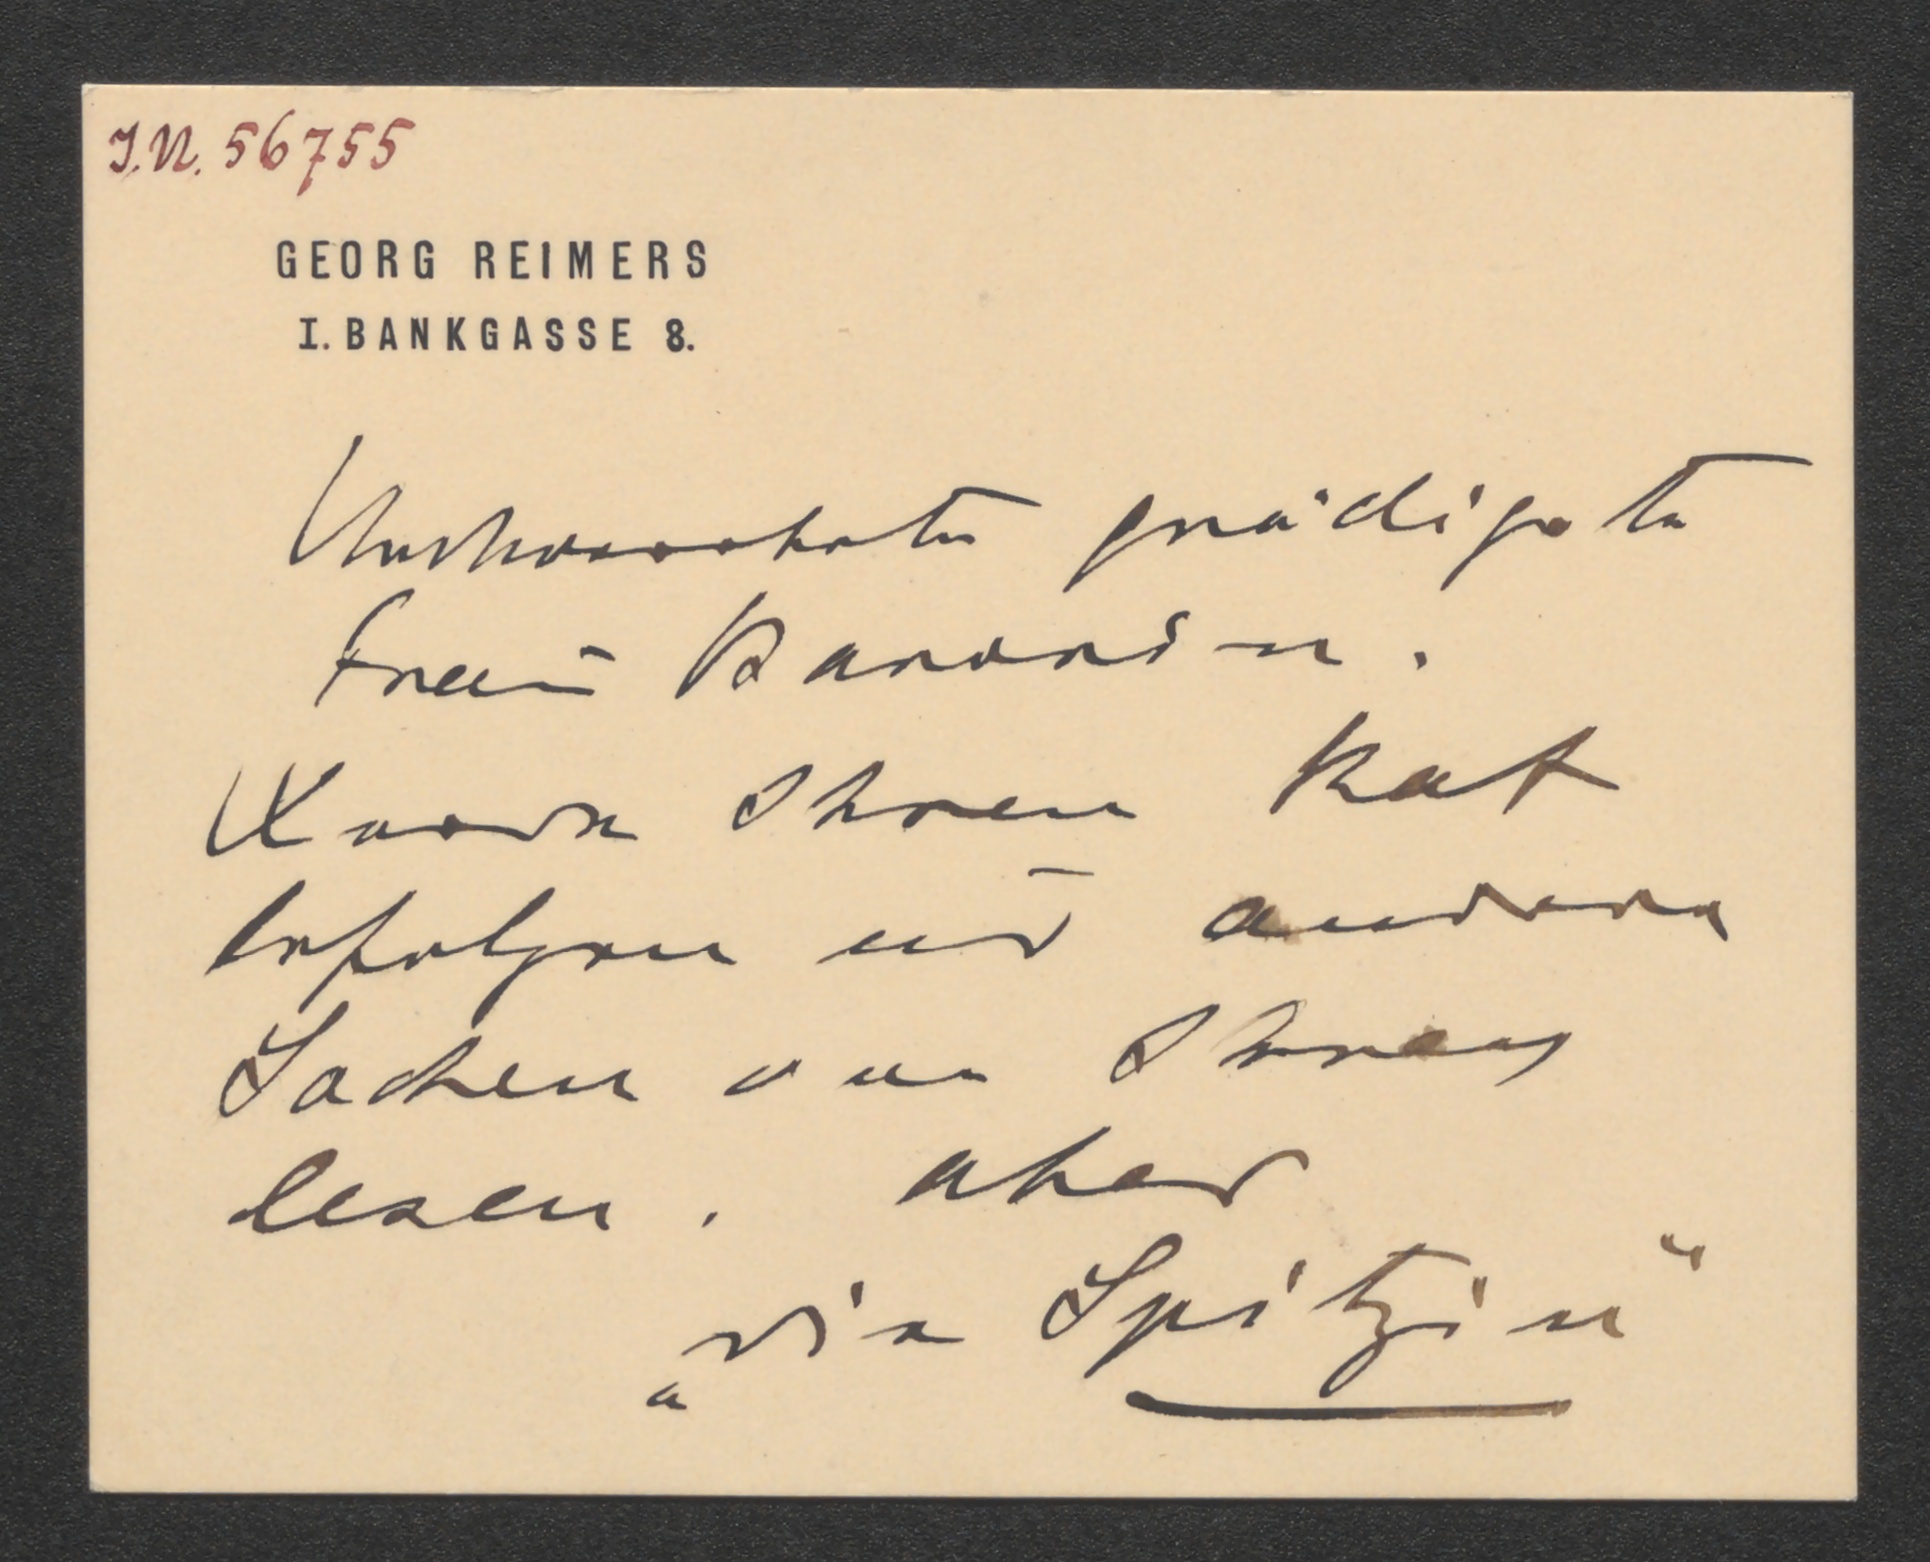 J.N. 56755
GEORG REIMERS
I. BANKGASSE 8.
Hochverehrte gnädigste
Frau Baronin.
Werde Ihren Rat
befolgen und andere
Sachen von Ihnen
lesen. aber
„die Spitzin“